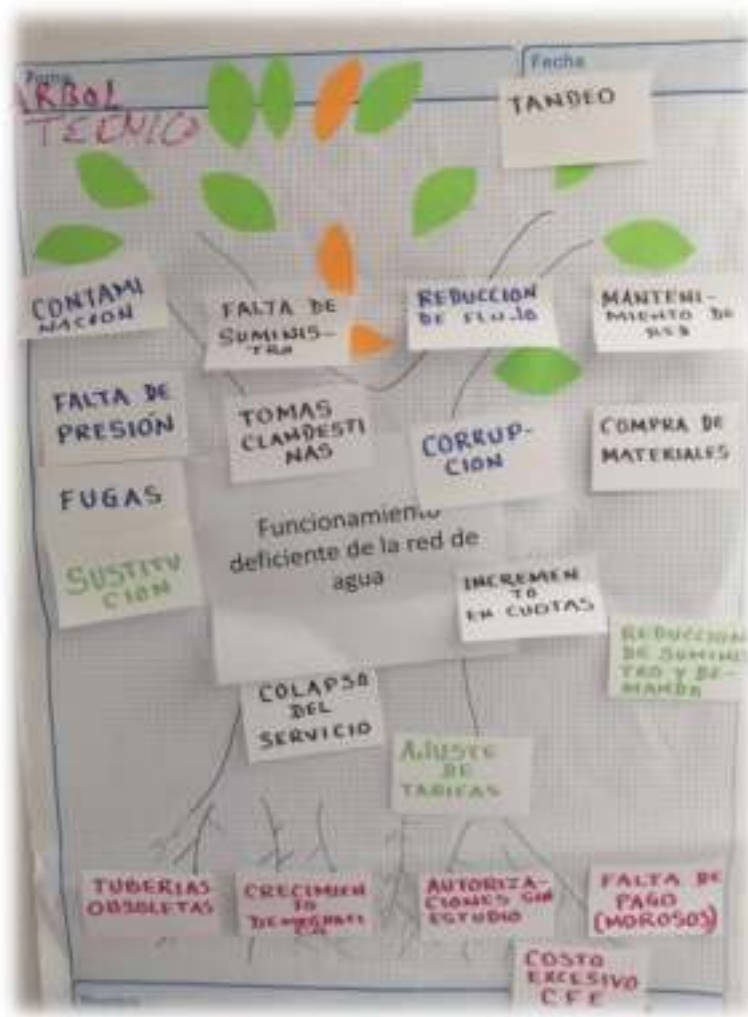 Fecha
ARBOL
TECNICO
TANDEO
CONTAMI
NACION
FALTA DE
SUMINIS-
TRO
REDUCCION
DE FLUJO
MANTENI-
MIENTO DE
RED
FALTA DE
PRESIÓN
TOMAS
CLANDESTI
NAS
CORRUP-
CION
COMPRA DE
MATERIALES
FUGAS
SUSTITU
CION
Funcionamiento
deficiente de la red de
agua
INCREMEN
TO
EN CUOTAS
REDUCCION
DE SUMINIS
TRO Y DE-
MANDA
COLAPSO
DEL
SERVICIO
AJUSTE
DE
TARIFAS
TUBERIAS
OBSOLETAS
CRECIMIEN
TO
AUTORIZA-
CIONES SIN
ESTUDIO
FALTA DE
PAGO
(MOROSOS)
COSTO
EXCESIVO
CFE